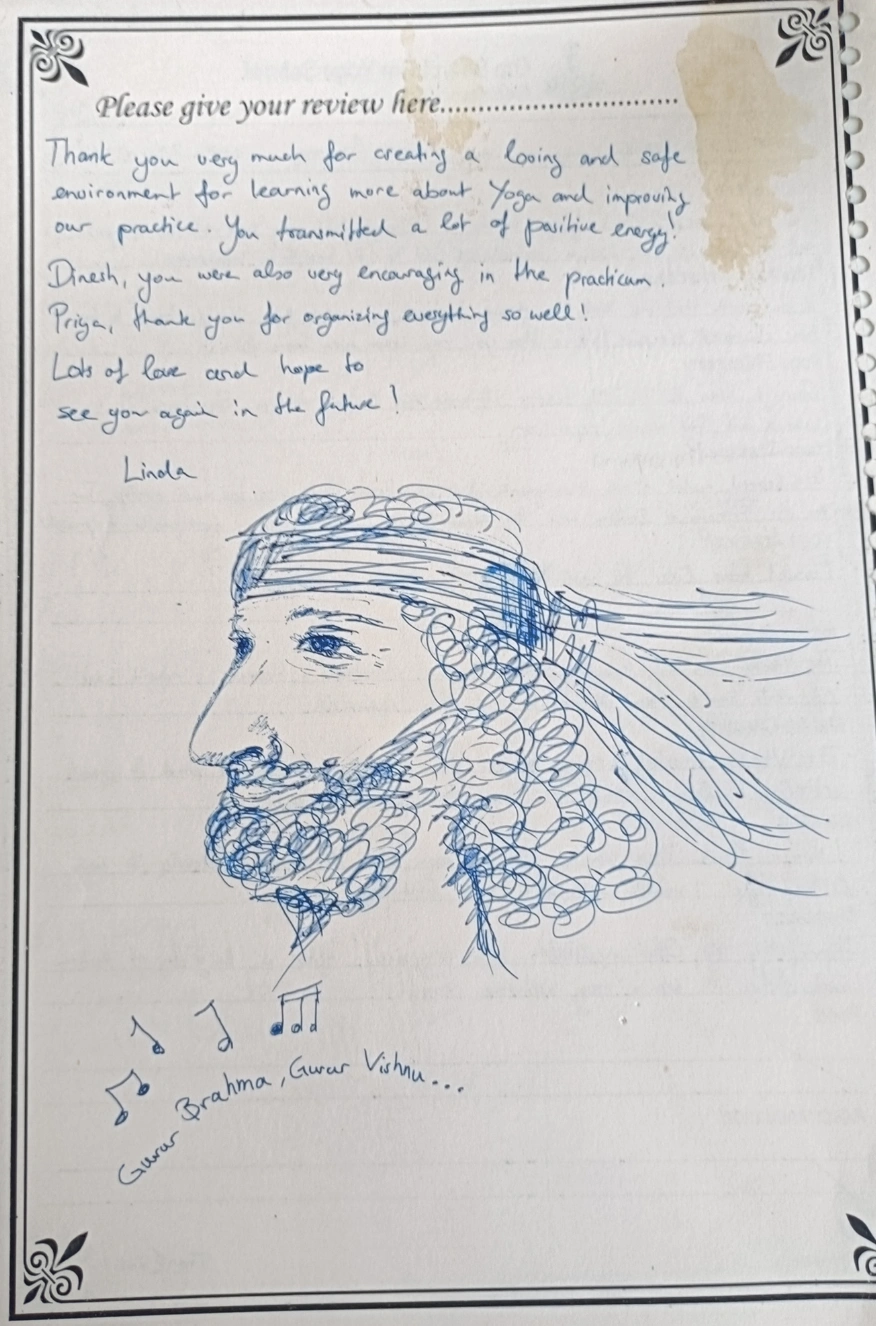 Please give your review here...............................
Thank you very much for creating a loving and safe
environment for learning more about Yoga and improving
our practice. You transmitted a lot of positive energy!
Dinesh, you were also very encouraging in the practicum.
Priya, thank you for organizing everything so well!
Lots of love and hope to
see you again in the future!
Linda
Gurur Brahma, Gurur Vishnu...